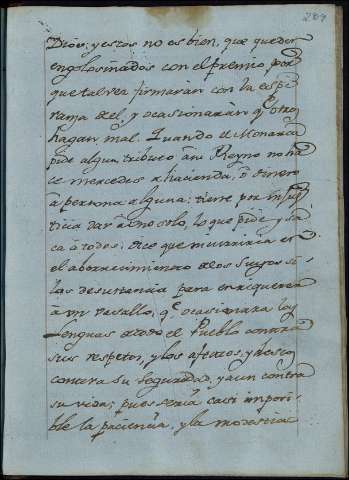 Dios; y estos no es bien, que queden
engolosinados con el premio por
que tal vez firmarán con la espe
ranza del, y ocasionarán q.e otro
hagan mal. Quando el Monarca
pide algun tributo à su Reyno no ha
ce mercedes de hacienda, ò dinero
à persona alguna: tiene por injus
ticia dar à uno solo, lo que pide y sa
ca à todos: dice que mereciera
el aborrecimiento de los Suyos si
las desustancia para enriquecer
à un vasallo, q.e ocasionara las
Lenguas de todo el Pueblo contra
sus respetos, y los afectos, y deseos
contra su seguridad, y aun contra
su vida; pues sería casi imposi
ble la paciencia, y la modestia